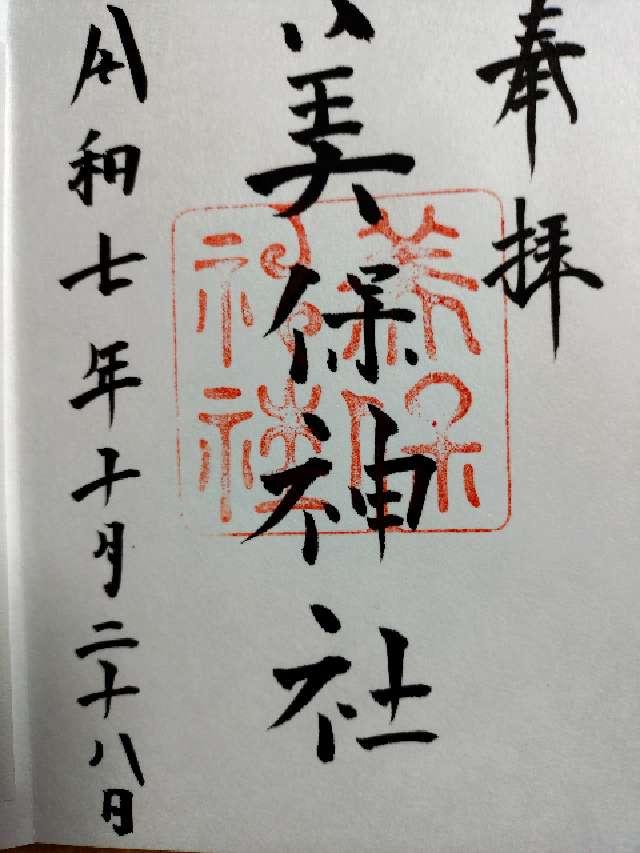 奉拝
美保神社
美保神社
令和七年十月二十八日